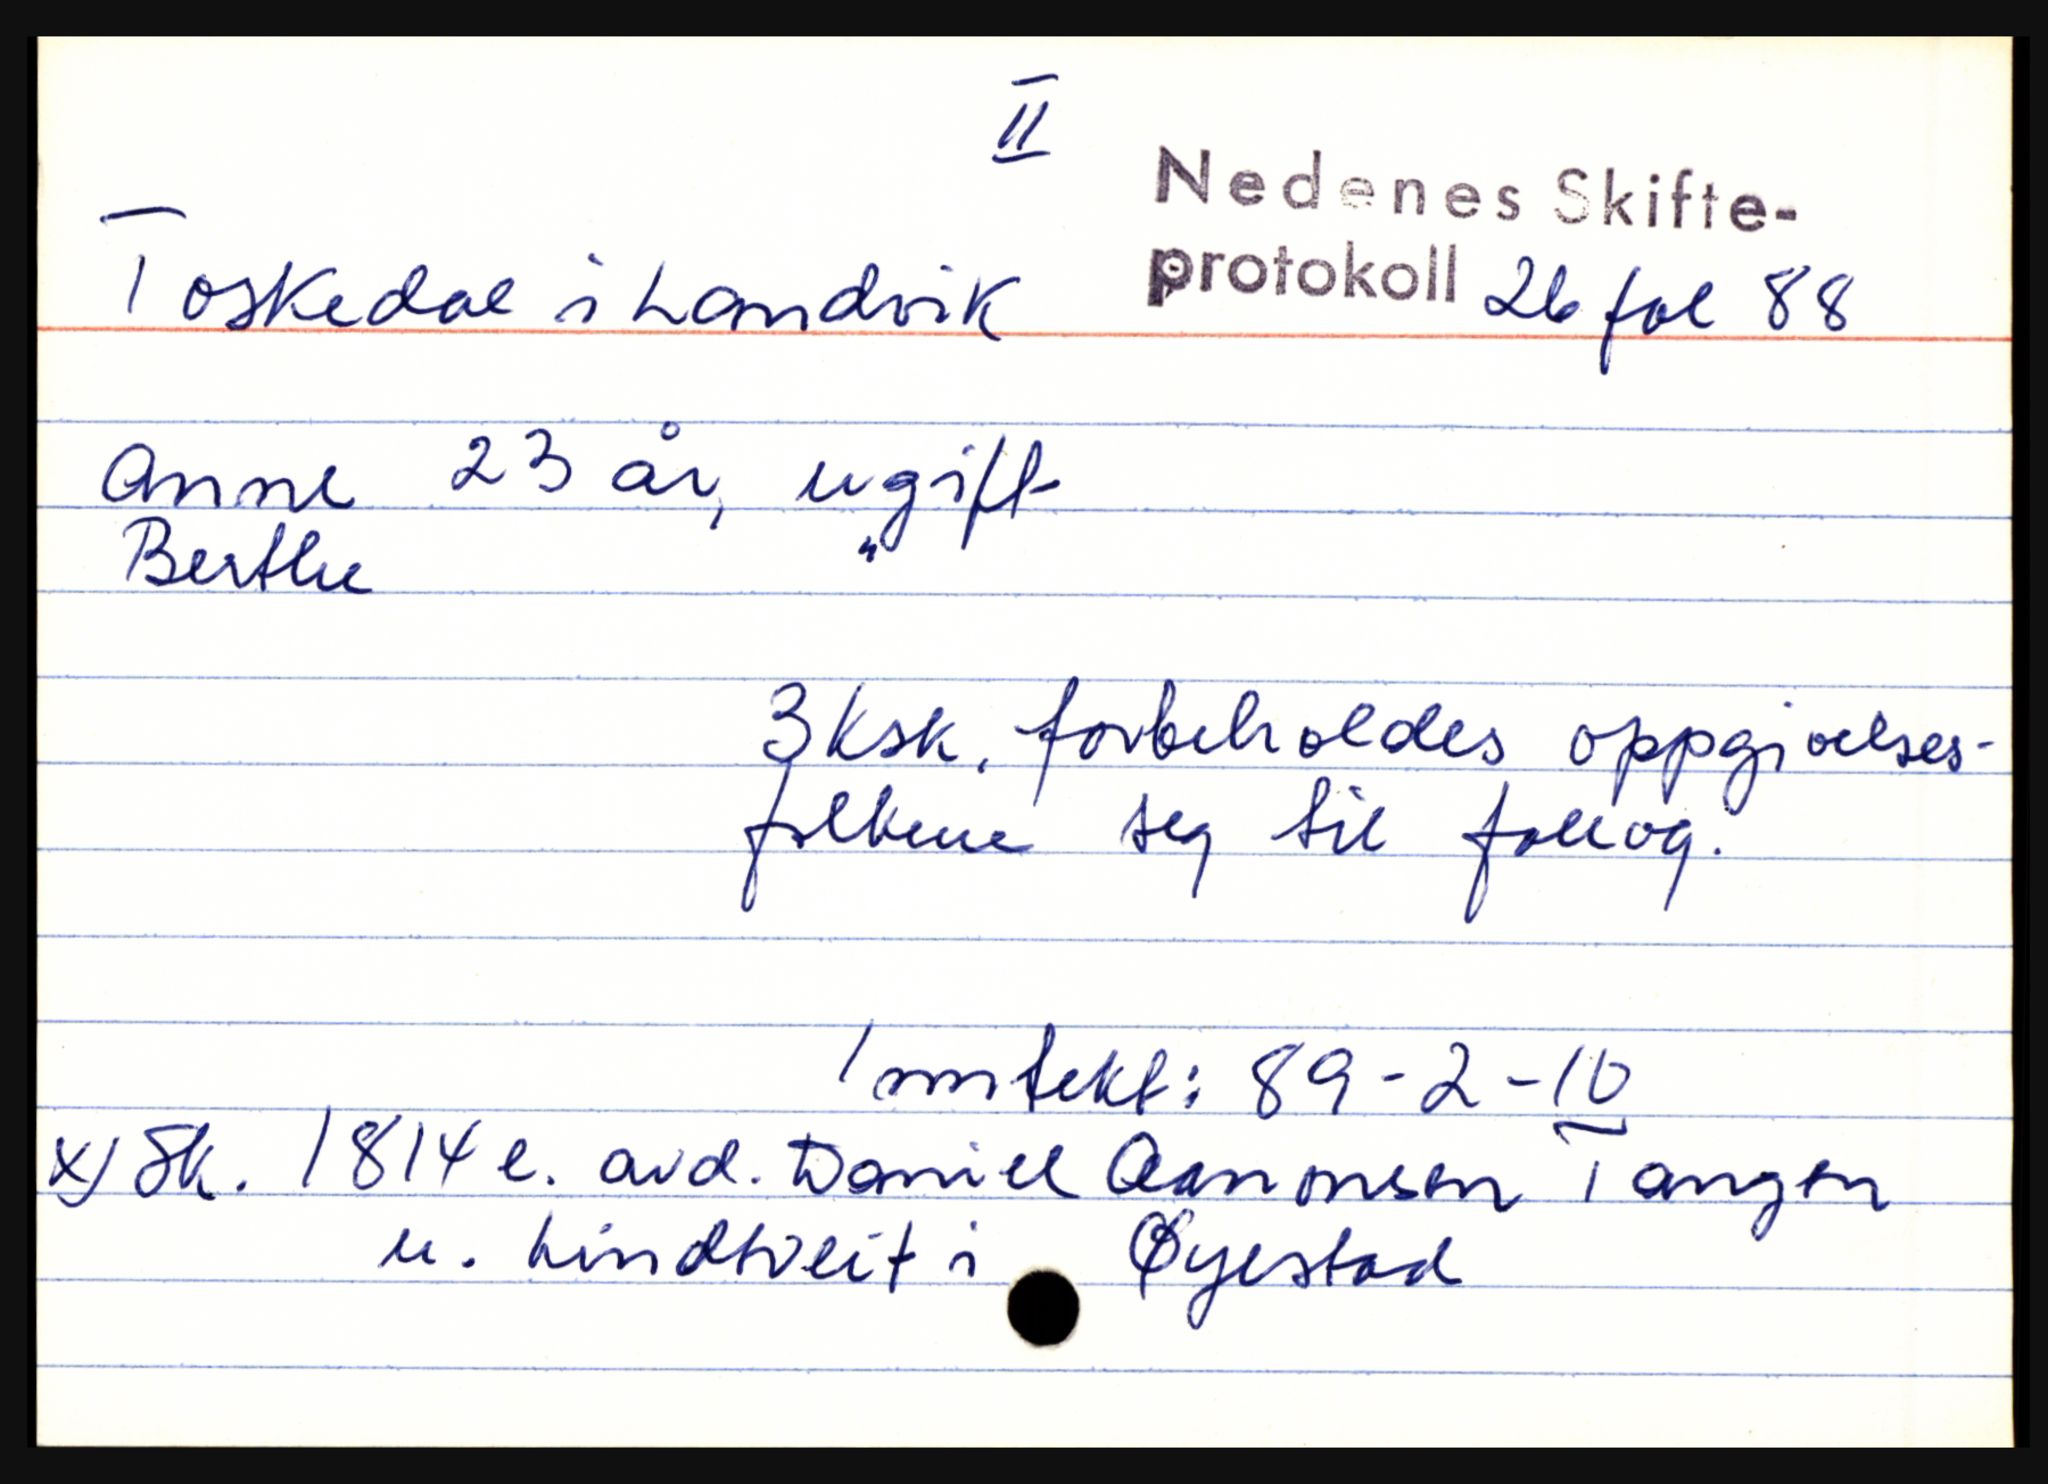 II
Nedenes Skifte-
protokoll 26 fol 88
Toskedal i Landvik
Anne 23 år, ugift
Berthe "
3 ksk. forbeholdes oppgivelses-
folkene seg til følkog.
Inntekt: 89-2-10
x) Sk. 1814 e. avd. Daniel Aanonsen Tangen
u. Lindtveit i Øyestad